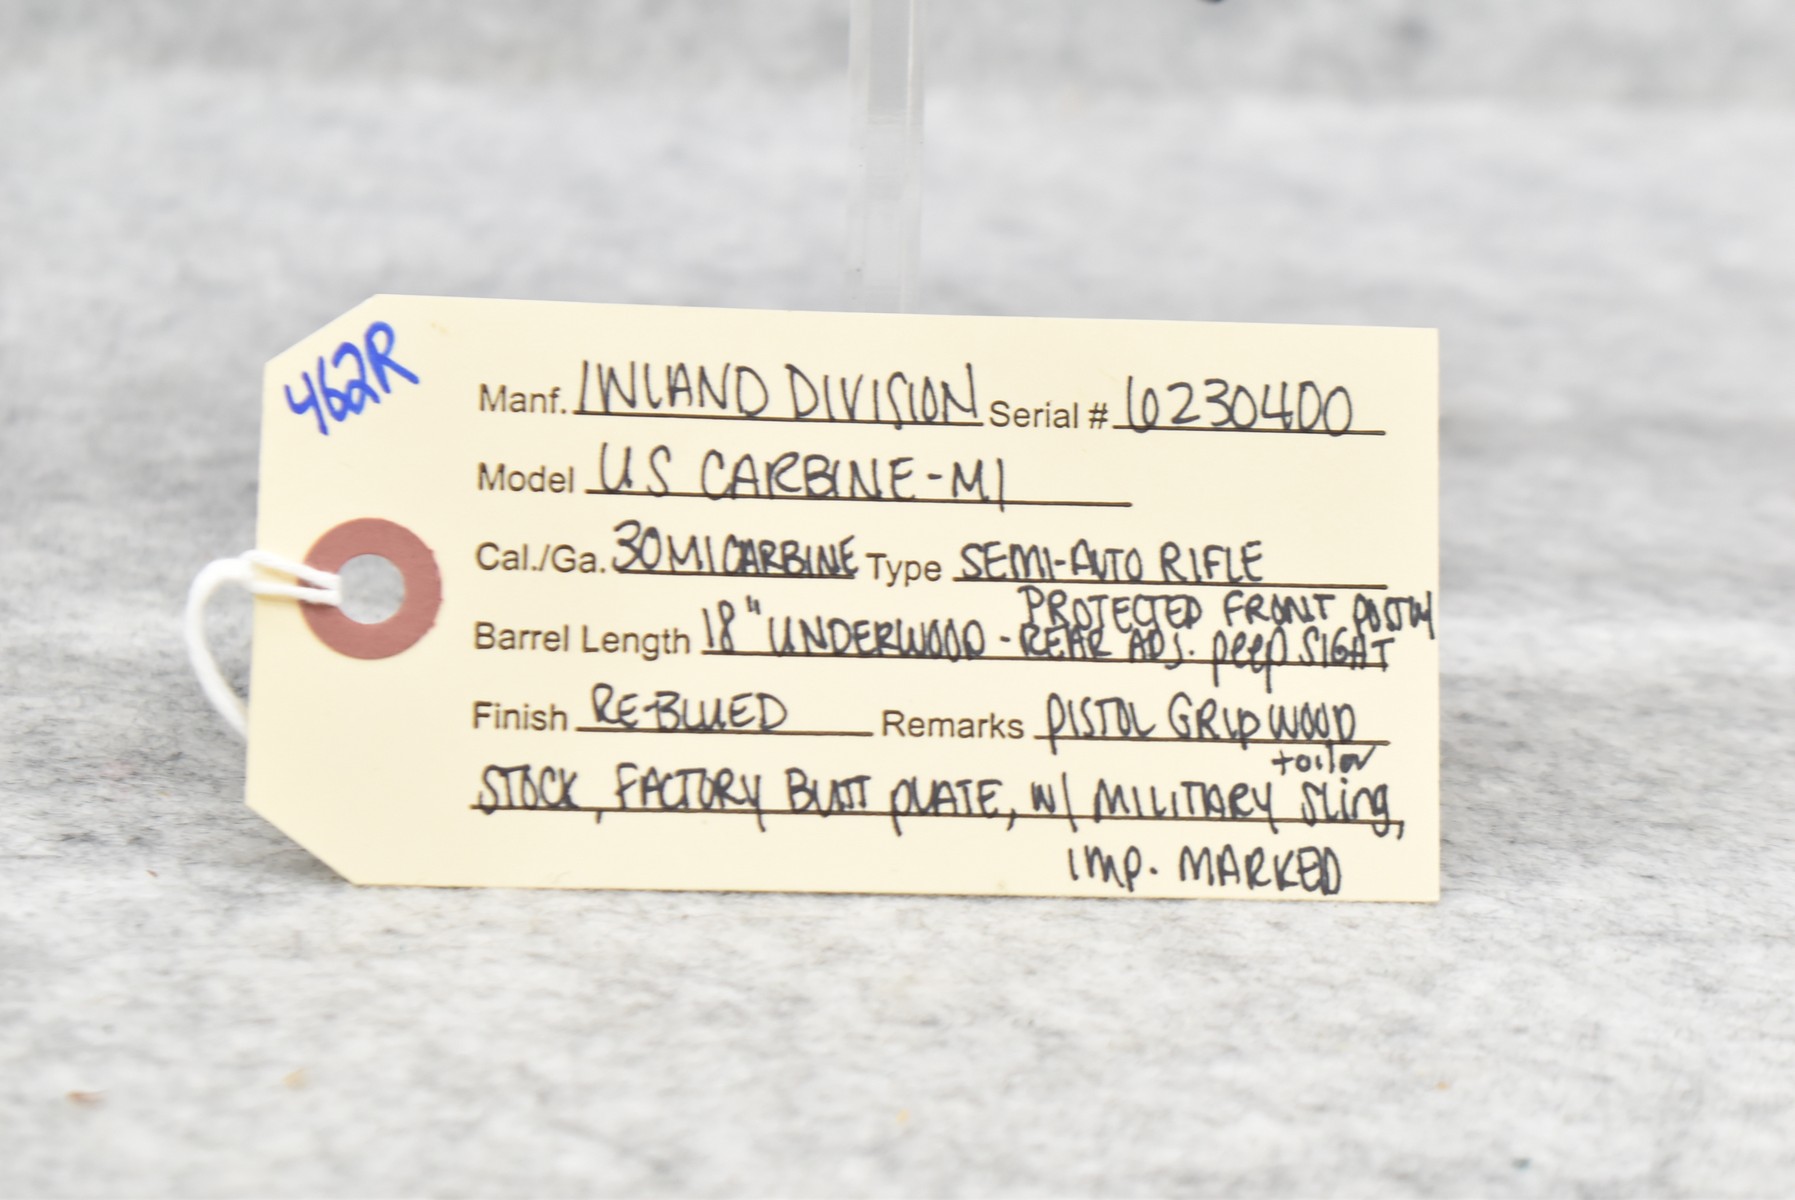 462R
Manf. INLAND DIVISION Serial # 6230400
Model US CARBINE-M1
Cal./Ga. 30 M1 CARBINE Type SEMI-AUTO RIFLE
PROTECTED FRONT POST W/
Barrel Length 18" UNDERWOOD - REAR ADJ. peep SIGHT
Finish RE-BLUED Remarks PISTOL GRIP WOOD
+ oiler
STOCK, FACTORY BUTT PLATE, W/ MILITARY Sling,
IMP. MARKED